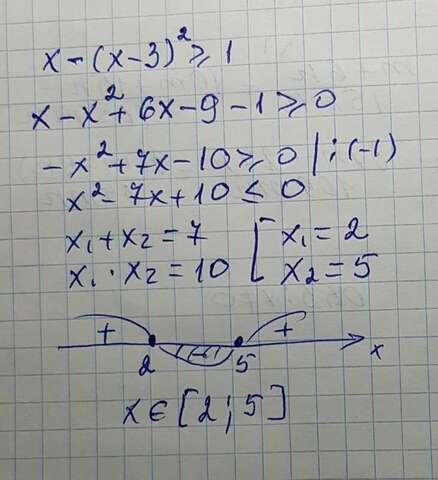 x - (x-3)² ⩾ 1
x - x² + 6x - 9 - 1 ⩾ 0
-x² + 7x - 10 ⩾ 0 | : (-1)
x² - 7x + 10 ≤ 0
x₁ + x₂ = 7 [ x₁ = 2
x₁ · x₂ = 10 [ x₂ = 5
+ (-) +
2 5 x
x ∈ [2; 5]